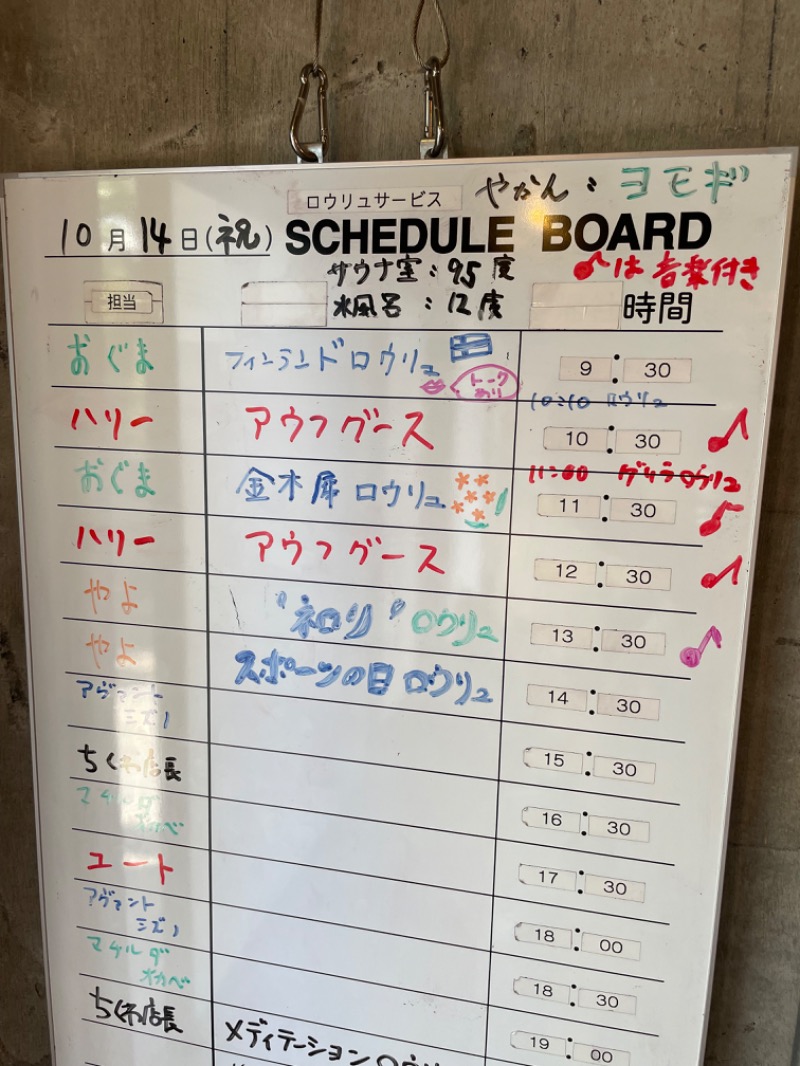 ロウリュサービス やかん：ヨモギ
10月14日(祝) SCHEDULE BOARD
サウナ室：95度 ♪は音楽付き
担当 水風呂：12度 時間
おぐま フィンランドロウリュ トークあり 9:30
10:10 ロウリュ
ハリー アウフグース 10:30 ♪
11:00 ゲリラロウリュ
おぐま 金木犀ロウリュ 11:30 ♪
ハリー アウフグース 12:30 ♪
やよ "ネロリ"ロウリュ 13:30 ♪
やよ スポーツの日ロウリュ 14:30
アヴァント ミズノ 15:30
ちくわ店長 16:30
マチルダ オカベ 17:30
ユート 18:00
アヴァント ミズノ 18:30
マチルダ オカベ 19:00
ちくわ店長 メディテーションロウリ